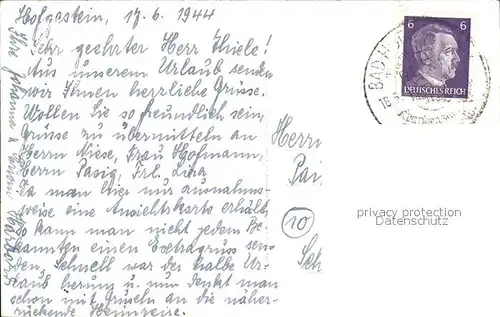 Hofgastein, 17.6.1944
Sehr geehrter Herr Thiele!
Aus unserem Urlaub senden
wir Ihnen herzliche Grüsse.
Wollen Sie so freundlich sein,
Grüsse zu übermitteln an
Herrn Niese, Frau Hofmann,
Herrn Pasig, Frl.
Da man hier nur ausnahms-
weise eine Ansichtskarte erhält,
kann man nicht jedem Be-
kannten einen Extragruss sen-
den. Schnell war der halbe Ur-
laub herum u. nun denkt man
schon mit Gruseln an die näher-
rückende Heimreise.
Ihre Johanna
6 6
DEUTSCHES REICH
BAD
Herrn
Pai
10
Sch
privacy protection
Datenschutz